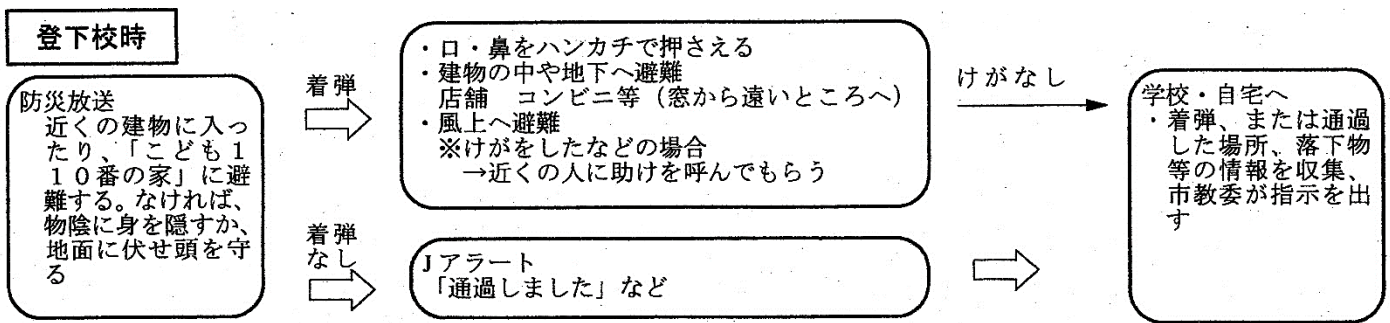 登下校時
防災放送
近くの建物に入っ
たり、「こども1
10番の家」に避
難する。なければ、
物陰に身を隠すか、
地面に伏せ頭を守
る
着弾
・口・鼻をハンカチで押さえる
・建物の中や地下へ避難
店舗　コンビニ等（窓から遠いところへ）
・風上へ避難
※けがをしたなどの場合
→近くの人に助けを呼んでもらう
けがなし
着弾
なし
Jアラート
「通過しました」など
学校・自宅へ
・着弾、または通過
した場所、落下物
等の情報を収集、
市教委が指示を出
す